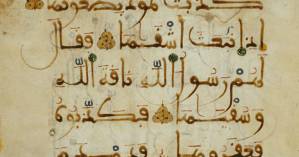 كذبت ثمود بطغويها
إذ انبعث أشقيها فقال
لهم رسول الله ناقة الله
وسقيها فكذبوه
فعقروها